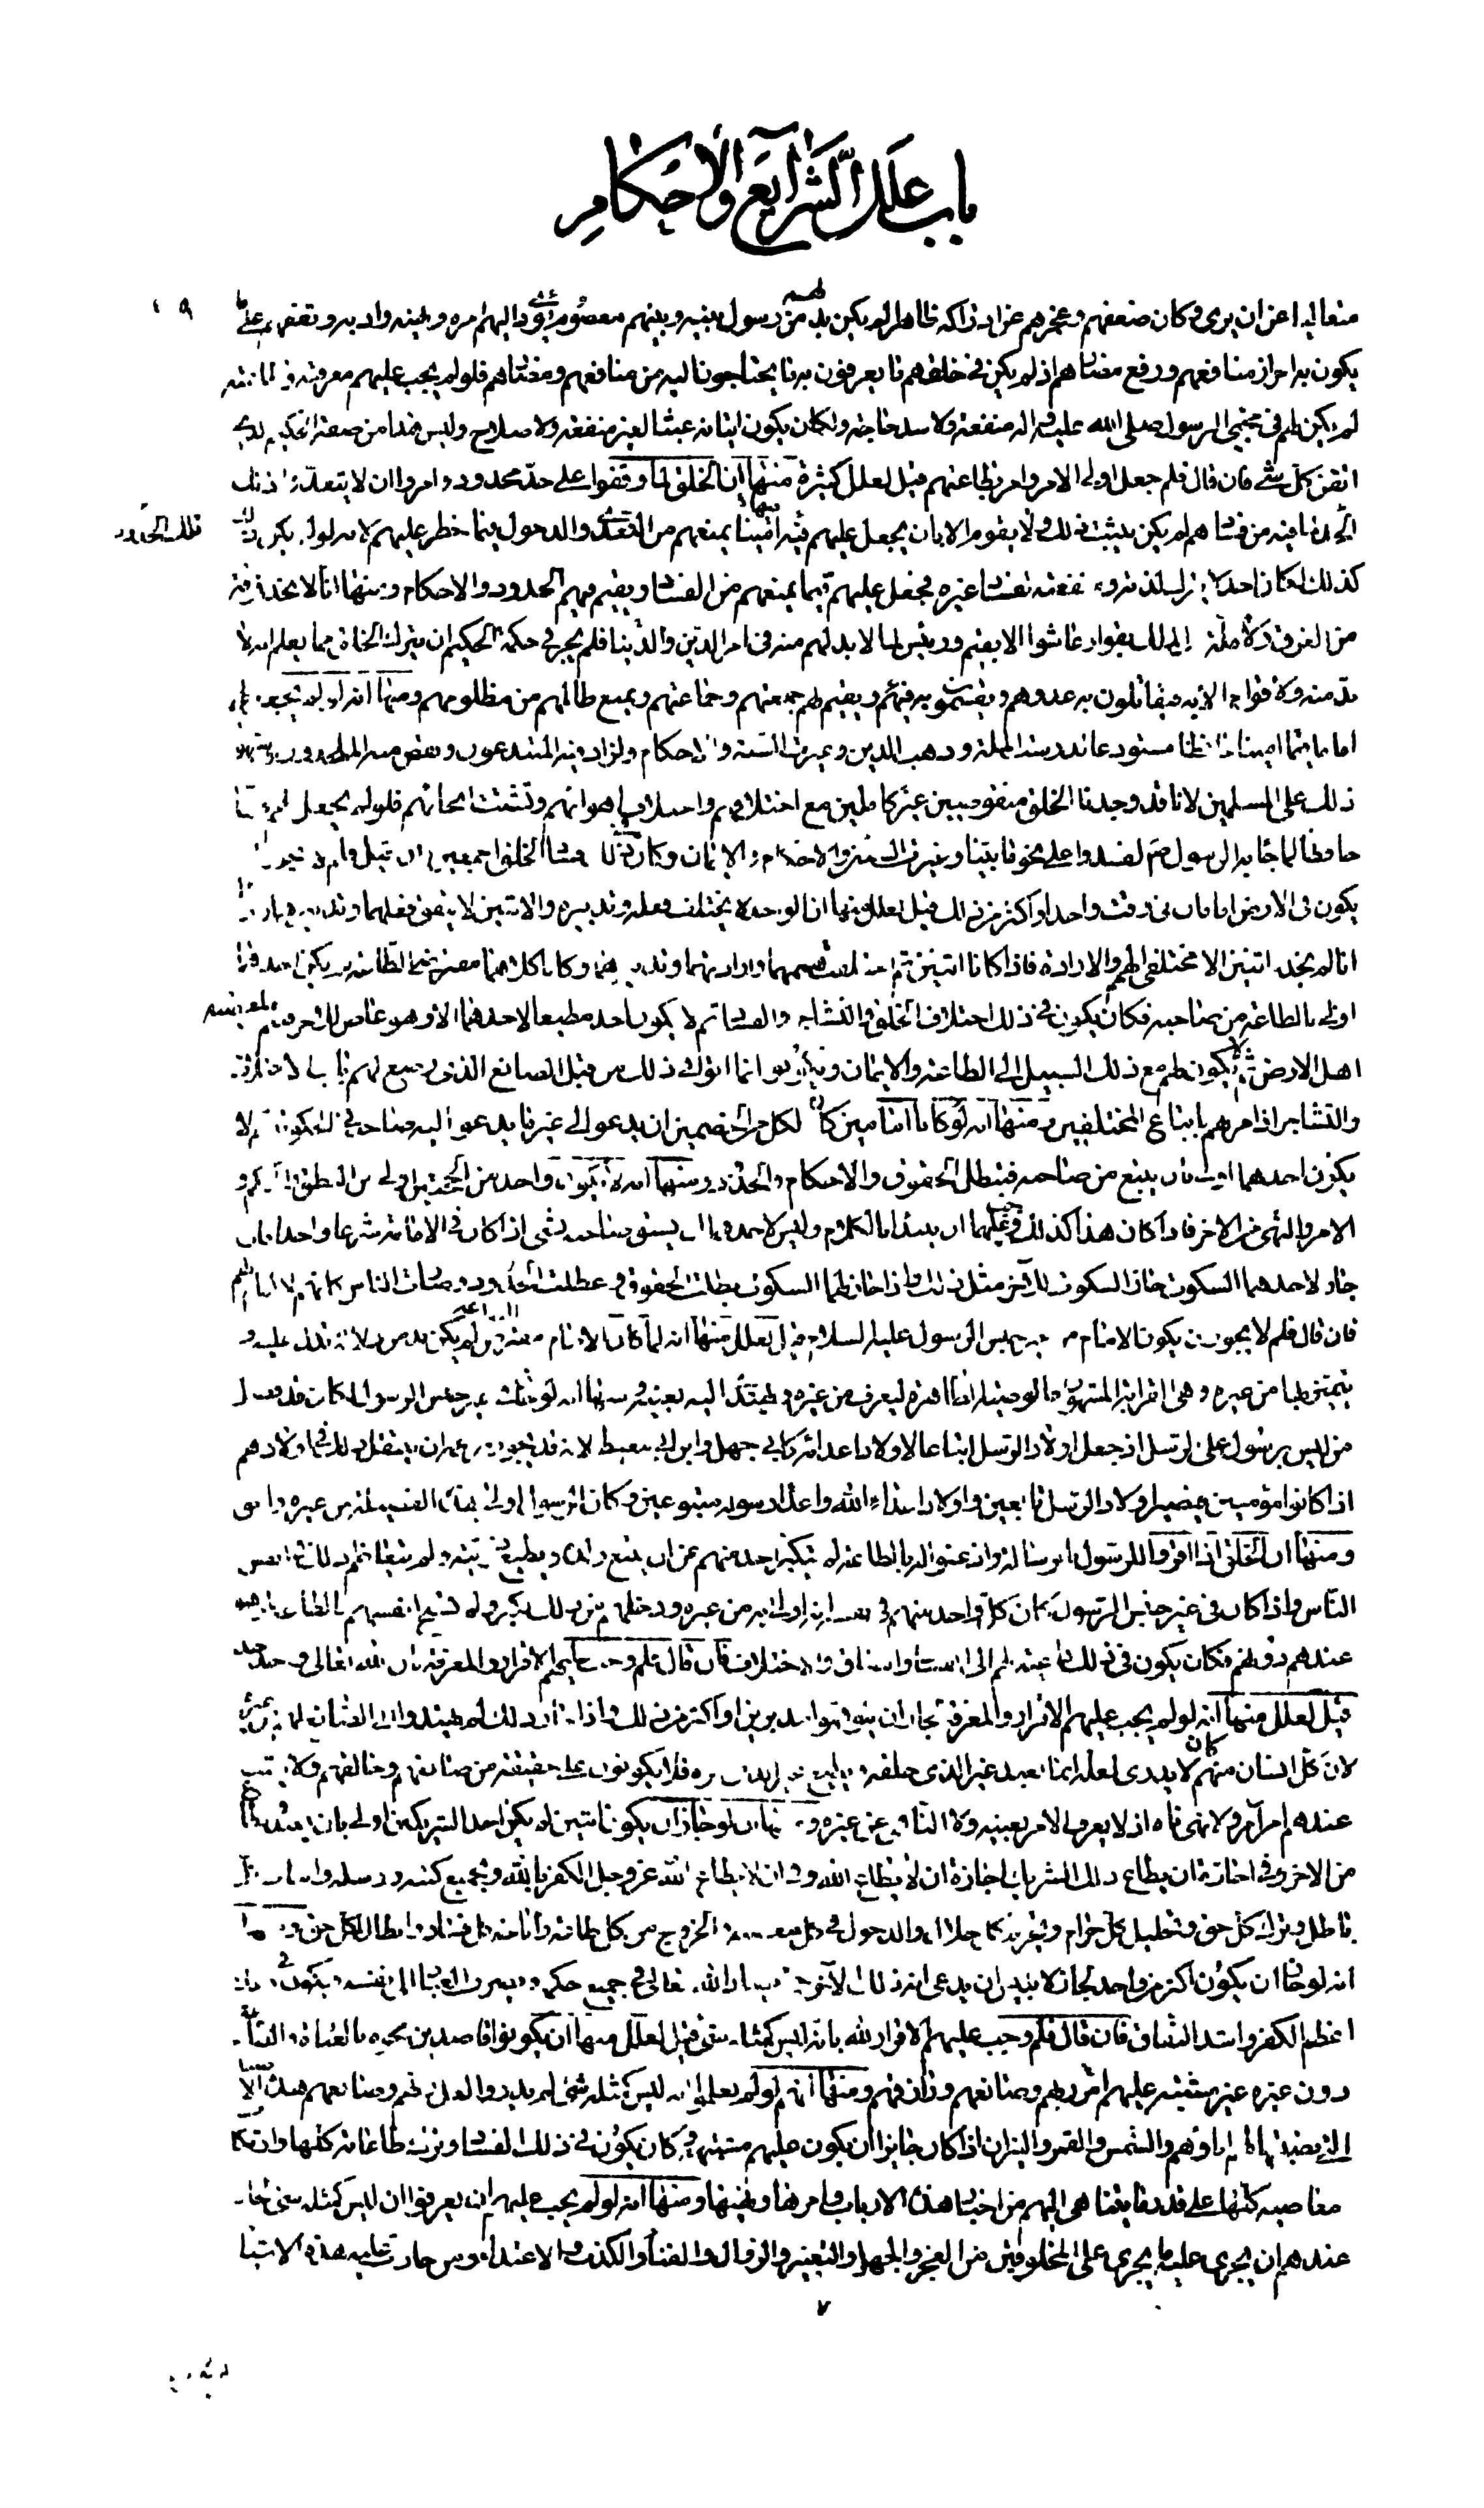 باب علل الشرايع والاحكام
متعاليا عن ان يرى وكان ضعفهم وعجزهم عن ادراكه ظاهرا لم يكن بد لهم من رسول بينه وبينهم معصوم يؤدي اليهم امره ونهيه وادبه ويقفهم على ما
يكون به احراز منافعهم ودفع مضارهم اذ لم يكن في خلقهم ما يعرفون به ما يحتاجون اليه من منافعهم ومضارهم فلو لم يجب عليهم معرفته وطاعته
لم يكن لهم في مجيئ الرسول صلى الله عليه واله منفعة ولا سد حاجة ولكان يكون اتيانه عبثا لغير منفعة ولا صلاح وليس هذا من صفة الحكيم الذي
اتقن كل شئ فان قال فلم جعل اولي الامر وامر بطاعتهم قيل لعلل كثيرة منها ان الخلق لما وقفوا على حد محدود وامروا ان لا يتعدوا ذلك
الحد لما فيه من فسادهم لم يكن يثبت ذلك ولا يقوم الا بان يجعل عليهم فيه امينا يمنعهم من التعدي والدخول فيما حظر عليهم لانه لو لم يكن ذلك
تلك الحدود
كذلك لكان احد لا يترك لذته ومنفعته لفساد غيره فجعل عليهم قيما يمنعهم من الفساد ويقيم فيهم الحدود والاحكام ومنها انا لا نجد فرقة
من الفرق ولا ملة من الملل بقوا وعاشوا الا بقيم ورئيس لما لا بد لهم منه في امر الدين والدنيا فلم يجز في حكمة الحكيم ان يترك الخلق مما يعلم انه لا
بد منه ولا قوام الا به فيقاتلون به عدوهم ويقسمون به فيئهم ويقيم لهم جمعتهم وجماعتهم ويمنع ظالمهم من مظلومهم ومنها انه لو لم يجعل لهم
اماما قيما امينا حافظا مستودعا لدرست الملة وذهب الدين وغيرت السنة والاحكام ولزاد فيه المبتدعون ونقص منه الملحدون وشبهوا
ذلك على المسلمين لانا قد وجدنا الخلق منقوصين غير كاملين مع اختلافهم واختلاف اهوائهم وتشتت انحائهم فلو لم يجعل لهم قيما
حافظا لما جاء به الرسول ص لفسدوا على نحو ما بينا وغيرت الشرايع والسنن والاحكام والايمان وكان في ذلك فساد الخلق اجمعين فان قيل فلم لا يجوز ان
يكون في الارض امامان في وقت واحد او اكثر من ذلك قيل لعلل منها ان الواحد لا يختلف فعله وتدبيره والاثنين لا يتفق فعلهما وتدبيرهما وذلك
انا لم نجد اثنين الا مختلفي الهمم والارادة فاذا كانا اثنين ثم اختلفت هممهما وارادتهما وتدبيرهما وكانا كلاهما مفترضي الطاعة لم يكن احدهما
اولى بالطاعة من صاحبه فكان يكون في ذلك اختلاف الخلق والتشاجر والفساد ثم لا يكون احد مطيعا لاحدهما الا وهو عاص للاخر فتعم المعصية
اهل الارض ثم لا يكون لهم مع ذلك السبيل الى الطاعة والايمان ويكونون انما اتوا في ذلك من قبل الصانع الذي وضع لهم باب الاختلاف
والتشاجر اذ امرهم باتباع المختلفين ومنها انه لو كانا امامين كان لكل من الخصمين ان يدعو الى غير ما يدعو اليه صاحبه في الحكومة ثم لا
يكون احدهما اولى بان يتبع من صاحبه فتبطل الحقوق والاحكام والحدود ومنها انه لا يكون واحد من الحجتين اولى من النطق والحكم و
الامر والنهي من الاخر فاذا كان هذا كذلك وجب عليهما ان يبتدئا بالكلام وليس لاحدهما ان يسبق صاحبه بشئ اذا كانا في الامامة شرعا واحدا فان
جاز لاحدهما السكوت جاز السكوت للاخر مثل ذلك واذا جاز لهما السكوت بطلت الحقوق وعطلت الحدود وصارت الناس كانهم لا امام لهم
فان قال فلم لا يجوز ان يكون الامام من غير جنس الرسول عليه السلام قيل لعلل منها انه لما كان الامام مفترض الطاعة لم يكن بد من دلالة تدل عليه و
يتميز بها من غيره وهي القرابة المشهورة والوصية الظاهرة ليعرف من غيره ويهتدى اليه بعينه ومنها انه لو جاز في غير جنس الرسول لكان قد فضل
من ليس برسول على الرسل اذ جعل اولاد الرسل اتباعا لاولاد اعدائه كابي جهل وابن ابي معيط لانه قد يجوز بزعمه ان ينتقل ذلك في اولادهم
اذا كانوا مؤمنين فيصير اولاد الرسل تابعين واولاد اعداء الله واعداء رسوله متبوعين وكان الرسول اولى بهذه الفضيلة من غيره واحق
ومنها ان الخلق اذا اقروا للرسول بالرسالة واذعنوا له بالطاعة لم يتكبر احد منهم عن ان يتبع ولده ويطيع ذريته ولم يتعاظم ذلك في انفس
الناس واذا كان في غير جنس الرسول كان كل واحد منهم في نفسه انه اولى به من غيره ودخلهم من ذلك الكبر ولم تسخ انفسهم بالطاعة لمن هو
عندهم دونهم فكان يكون في ذلك داعية لهم الى الفساد والنفاق والاختلاف فان قال فلم وجب عليهم الاقرار والمعرفة بان الله تعالى واحد احد
قيل لعلل منها انه لو لم يجب عليهم الاقرار والمعرفة لجاز ان يتوهموا مدبرين او اكثر من ذلك واذا جاز ذلك لم يهتدوا الى الصانع لهم من غيره
لان كل انسان منهم كان لا يدري لعله انما يعبد غير الذي خلقه ويطيع غير الذي امره فلا يكونون على حقيقة من صانعهم وخالقهم ولا يثبت
عندهم امر آمر ولا نهي ناه اذ لا يعرف الامر بعينه ولا الناهي من غيره ومنها ان لو جاز ان يكون اثنين لم يكن احد الشريكين اولى بان يعبد ويطاع
من الاخر وفي اجازة ان يطاع ذلك الشريك اجازة ان لا يطاع الله وفي ان لا يطاع الله عز وجل الكفر بالله وبجميع كتبه ورسله واثبات كل
باطل وترك كل حق وتحليل كل حرام وتحريم كل حلال والدخول في كل معصية والخروج من كل طاعة واباحة كل فساد وابطال كل حق ومنها
انه لو جاز ان يكون اكثر من واحد لجاز لابليس ان يدعي انه ذلك الاخر حتى يضاد الله تعالى في جميع حكمه ويصرف العباد الى نفسه فيكون في ذلك
اعظم الكفر واشد النفاق فان قال فلم وجب عليهم الاقرار لله بانه ليس كمثله شئ قيل لعلل منها ان يكونوا قاصدين نحوه بالعبادة والطاعة
دون غيره غير مشتبه عليهم امر ربهم وصانعهم ورازقهم ومنها انهم لو لم يعلموا انه ليس كمثله شئ لم يدروا لعل ربهم وصانعهم هذه الاصنام
التي نصبتها لهم اباؤهم والشمس والقمر والنيران اذا كان جائزا ان يكون عليهم مشتبه وكان يكون في ذلك الفساد وترك طاعاته كلها وارتكاب
معاصيه كلها على قدر ما يتناهى اليهم من اخبار هذه الارباب وامرها ونهيها ومنها انه لو لم يجب عليهم ان يعرفوا ان ليس كمثله شئ لجاز
عندهم ان يجري عليه ما يجري على المخلوقين من العجز والجهل والتغيير والزوال والفناء والكذب والاعتداء ومن جازت عليه هذه الاشياء
٧